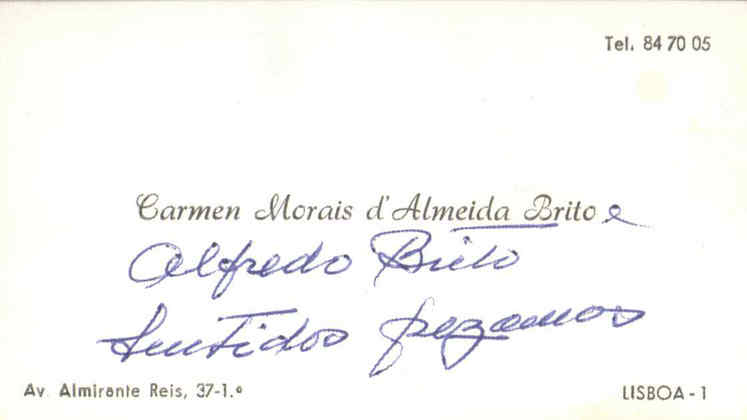 Tel. 84 70 05
Carmen Morais d'Almeida Brito e
Alfredo Brito
Sentidos pezames
Av. Almirante Reis, 37-1.º
LISBOA - 1